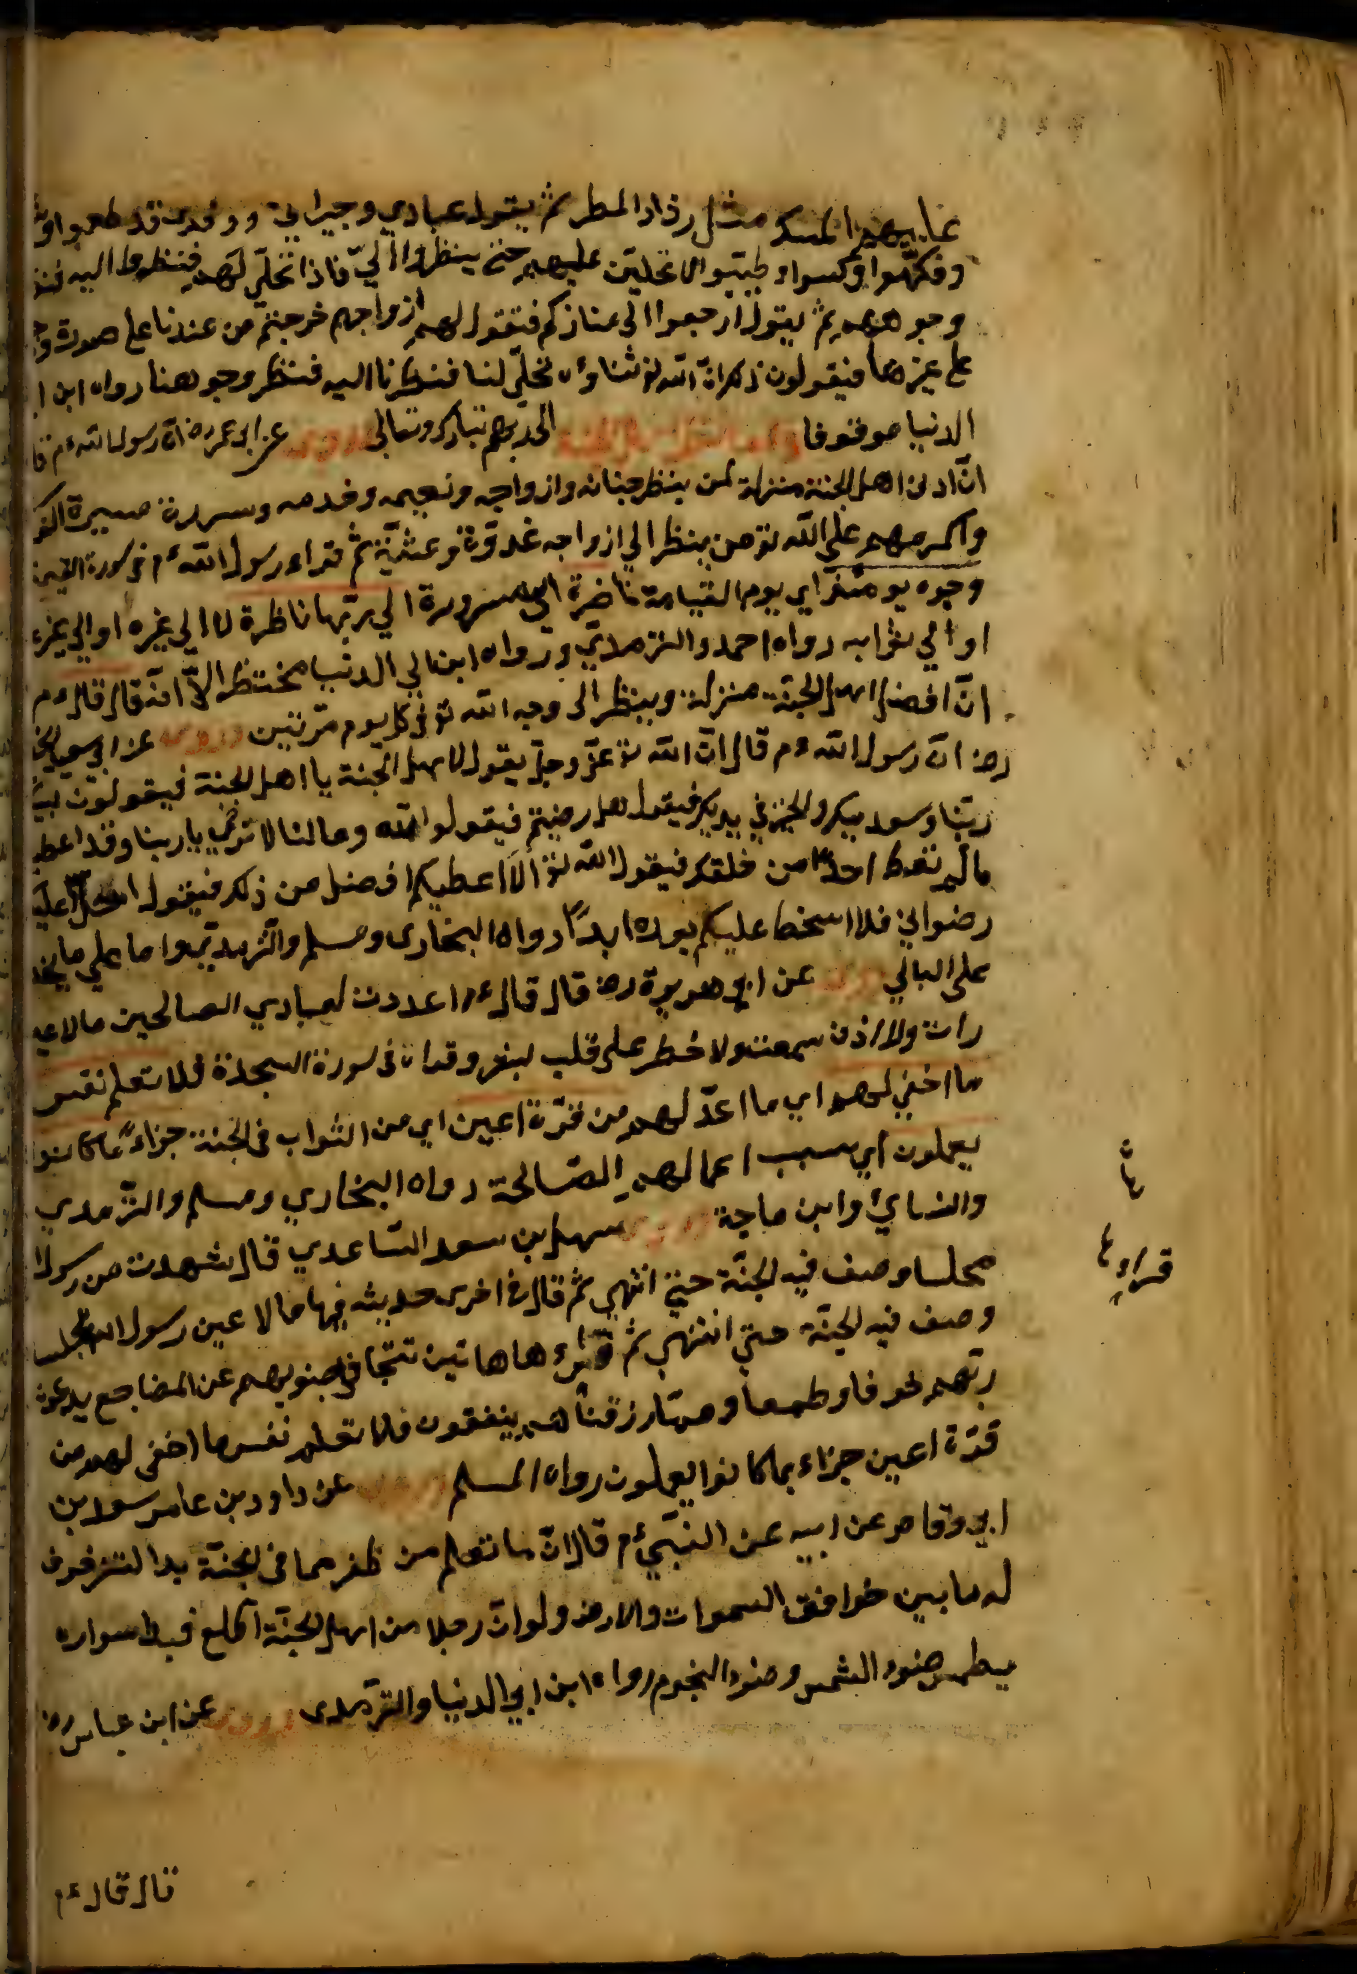 عليهم المسك مثل رذاذ المطر ثم يقول عبادي وجيراني ووفدي قد طعموا
وفكهوا وكسوا وطيبوا لا تجلين عليهم حتى ينظروا الي فاذا تجلي لهم فنظروا اليه
وجوههم ثم يقول ارجعوا الى منازلكم فتقول لهم ازواجهم خرجتم من عندنا على صورة
على غيرها فيقولون ذلك ان الله تع ثناؤه تجلى لنا فنظرنا اليه فنضر وجوهنا رواه ابن
الدنيا موقوفا الى ربهم تبارك وتعالى وروي عن ابن عمر رض ان رسول الله ءم
ان ادنى اهل الجنة منزلة لمن ينظر جنانه وازواجه ونعيمه وخدمه وسرره مسيرة
واكرمهم على الله تع من ينظر الي ازواجه غدوة وعشية ثم قراء رسول الله ءم في سورة القيمة
وجوه يومئذ اي يوم القيامة ناضرة اي مسرورة الي ربها ناظرة لا الي غيره او الي
او الي ثوابه رواه احمد والترمذي ورواه ابن ابي الدنيا مختصرا الا انه قال قال ءم
ان افضل اهل الجنة منزلة وينظر الى وجه الله تع في كل يوم مرتين وروي عن ابي سعيد
رض ان رسول الله ءم قال ان الله تع عز وجل يقول لاهل الجنة يا اهل الجنة فيقولون
ربنا وسعديك والخير في يديك فيقول هل رضيتم فيقولوا وما لنا لا نرضي يا ربنا وقد
مالم تعط احدا من خلقك فيقول الله تع الا اعطيكم افضل من ذلك فيقول احل
رضواني فلا اسخط عليكم بعده ابدا رواه البخاري ومسلم والترمذي واما على ما
على البالي وروي عن ابي هريرة رض قال قال ءم اعددت لعبادي الصالحين مالا
رات ولا اذن سمعت ولا خطر على قلب بشر وقراء في سورة السجدة فلا تعلم نفس
ما اخفي لهم اي ما اعد لهم من قرة اعين اي من الثواب في الجنة جزاء بما كانوا
يعملون اي سبب اعمالهم الصالحة رواه البخاري ومسلم والترمذي
والنسائي وابن ماجة وروي سهل بن سعد الساعدي قال شهدت من رسول
مجلسا وصف فيه الجنة حتي انتهي ثم قال في اخرى حديثه فيها مالا عين رسول الله مجلس
وصف فيه الجنة حتي انتهي ثم هاهاتين تتجافى جنوبهم عن المضاجع يدعون
ربهم خوفا وطمعا ومما رزقناهم ينفقون فلا تعلم نفس ما اخفى لهم من
قرة اعين جزاء بما كانوا يعملون رواه المسلم وروي عن داود بن عامر سعد بن
ابي وقاص عن ابيه عن النبي ءم قال ان ما تعلم من ظفر مما في الجنة بدا لتزخرف
له ما بين خوافق السموات والارض ولو ان رجلا من اهل الجنة اطلع فبدا سواره
يطمس ضوء الشمس وضوء النجوم رواه ابن ابي الدنيا والترمذي وروي عن ابن عباس رض
قراءها
قال قال ءم